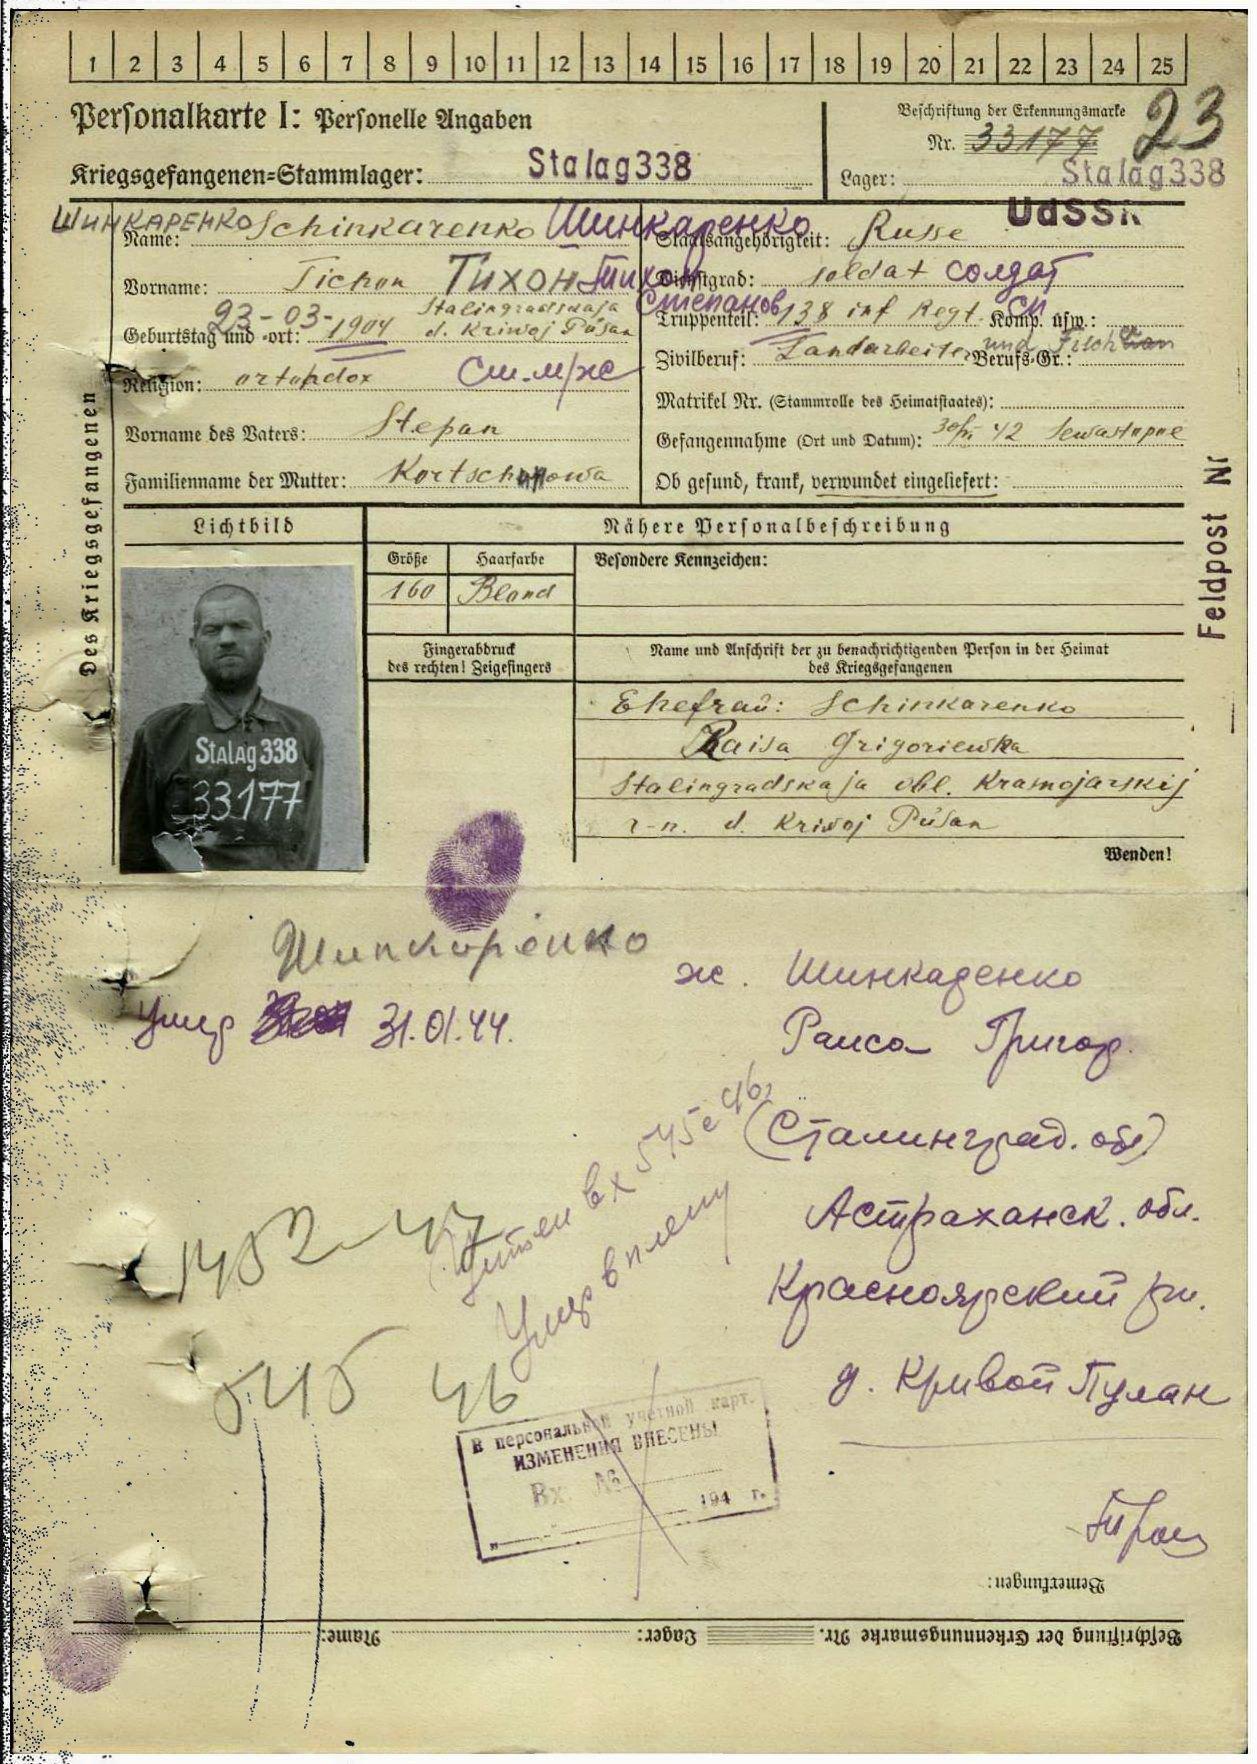 1 2 3 4 5 6 7 8 9 10 11 12 13 14 15 16 17 18 19 20 21 22 23 24 25
Personalkarte I: Personelle Angaben
Beschriftung der Erkennungsmarke
23
Nr. 33177
Kriegsgefangenen=Stammlager: Stalag 338
Lager: Stalag 338
UdSSR
ШИНКАРЕНКО
Name: Schinkarenko Шинкаренко
Staatsangehörigkeit: Russe
Vorname: Tichon Тихон Тихон
Степанов
Dienstgrad: soldat солдат
Geburtstag und =ort: 23-03-1904 Stalingradskaja d. Kriwoj Pusan
Truppenteil: 138 inf Regt. Komp. usw.:
Religion: ortodox
Zivilberuf: Landarbeiter und Berufs=Gr.:
Matrikel Nr. (Stammrolle des Heimatstaates):
Vorname des Vaters: Stepan
Gefangennahme (Ort und Datum): 42 Sewastopol
Familienname der Mutter:
Ob gesund, krank, verwundet eingeliefert:
Des Kriegsgefangenen
Feldpost Nr
Lichtbild
Nähere Personalbeschreibung
Größe Haarfarbe Besondere Kennzeichen:
160 Blond
Fingerabdruck
des rechten! Zeigefingers
Name und Anschrift der zu benachrichtigenden Person in der Heimat
des Kriegsgefangenen
Stalag 338
33177
Ehefrau: Schinkarenko
Raisa Grigoriewka
Stalingradskaja obl. Krasnojarskij
r-n. d. Kriwoj Pusan
Wenden!
Шинкаренко
ж. Шинкаренко
Умер 31.01.44.
Раиса Григор.
(Сталинград. обл)
Астраханск. обл.
Красноярский рн.
д. Кривой Пулан
1452-47
вх 545с 46г
Умер в плену
545 46
В персональной учетной карт.
ИЗМЕНЕНИЯ ВНЕСЕНЫ
Вх. №
194 г.
Bemerkungen:
Beschriftung der Erkennungsmarke Nr. Lager: Name: